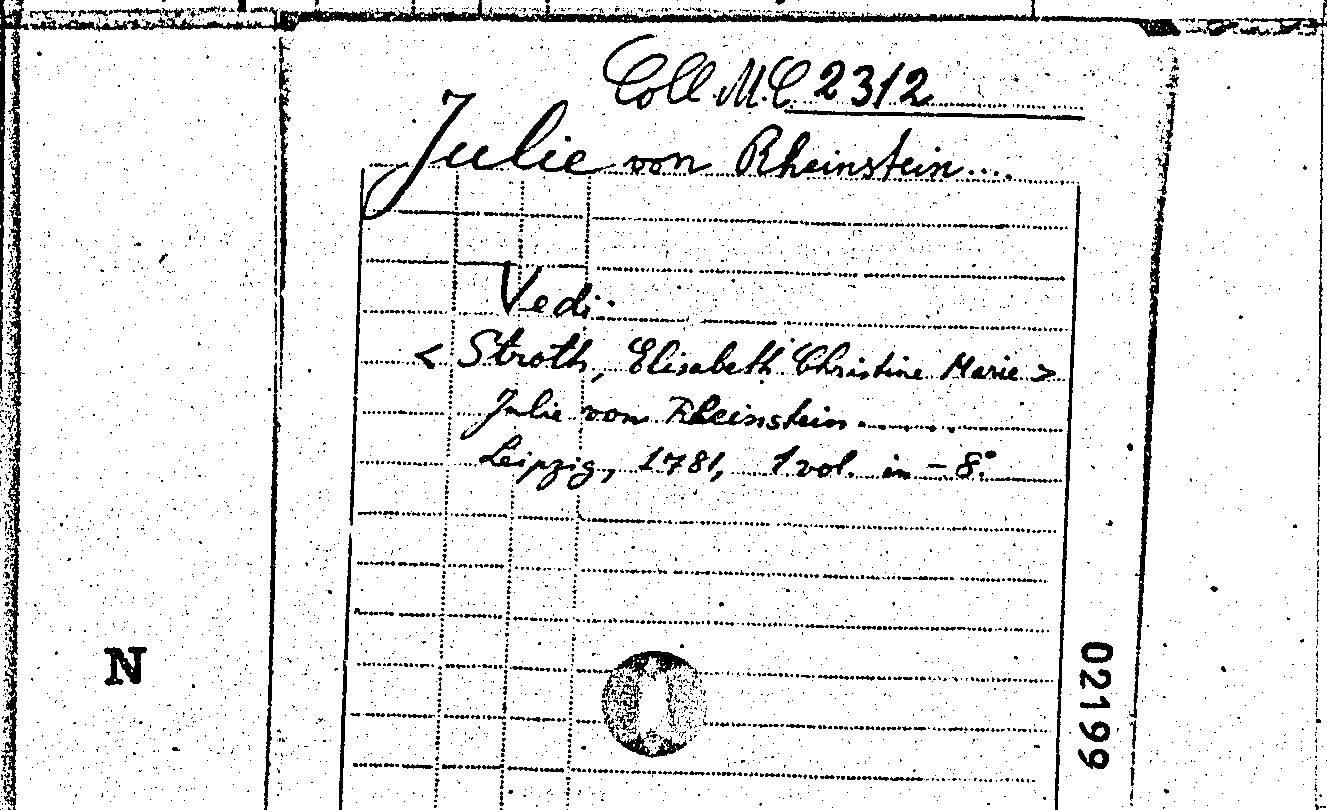 Coll. M.C 2312
Julie von Rheinstein....
Vedi:
< Stroth, Elisabeth Christine Marie >
Julie von Rheinstein........
Leipzig, 1781, 1 vol. in-8.°
N
02199